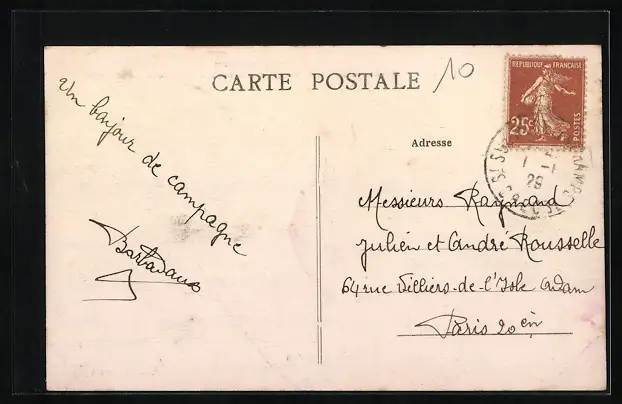 CARTE POSTALE
10
REPUBLIQUE FRANÇAISE
25c
POSTES
29
Un bonjour de campagne
Adresse
Messieurs Raymond
Julien et André Rousselle
64 rue Villiers-de-l'Isle Adam
Paris 20 èm